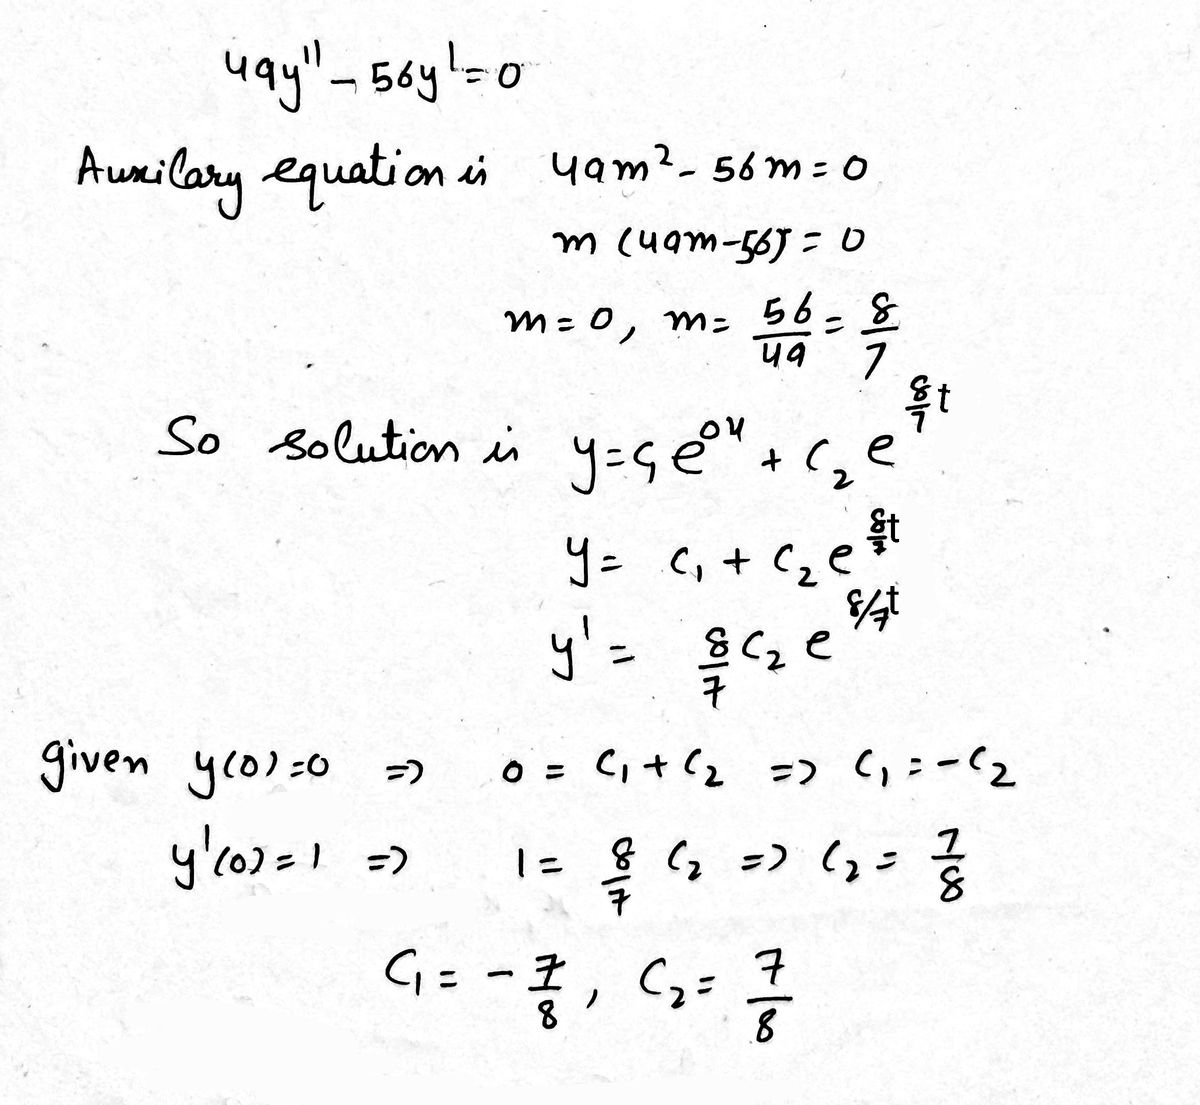 49y'' - 56y' = 0
Auxilary equation is 49m² - 56m = 0
m (49m-56) = 0
m = 0, m = 56/49 = 8/7
So solution is y = c₁e⁰ˣ + c₂ e^(8/7 t)
y = c₁ + c₂ e^(8/7 t)
y' = 8/7 c₂ e^(8/7 t)
given y(0)=0 => 0 = c₁ + c₂ => c₁ = -c₂
y'(0)=1 => 1 = 8/7 c₂ => c₂ = 7/8
c₁ = -7/8, c₂ = 7/8